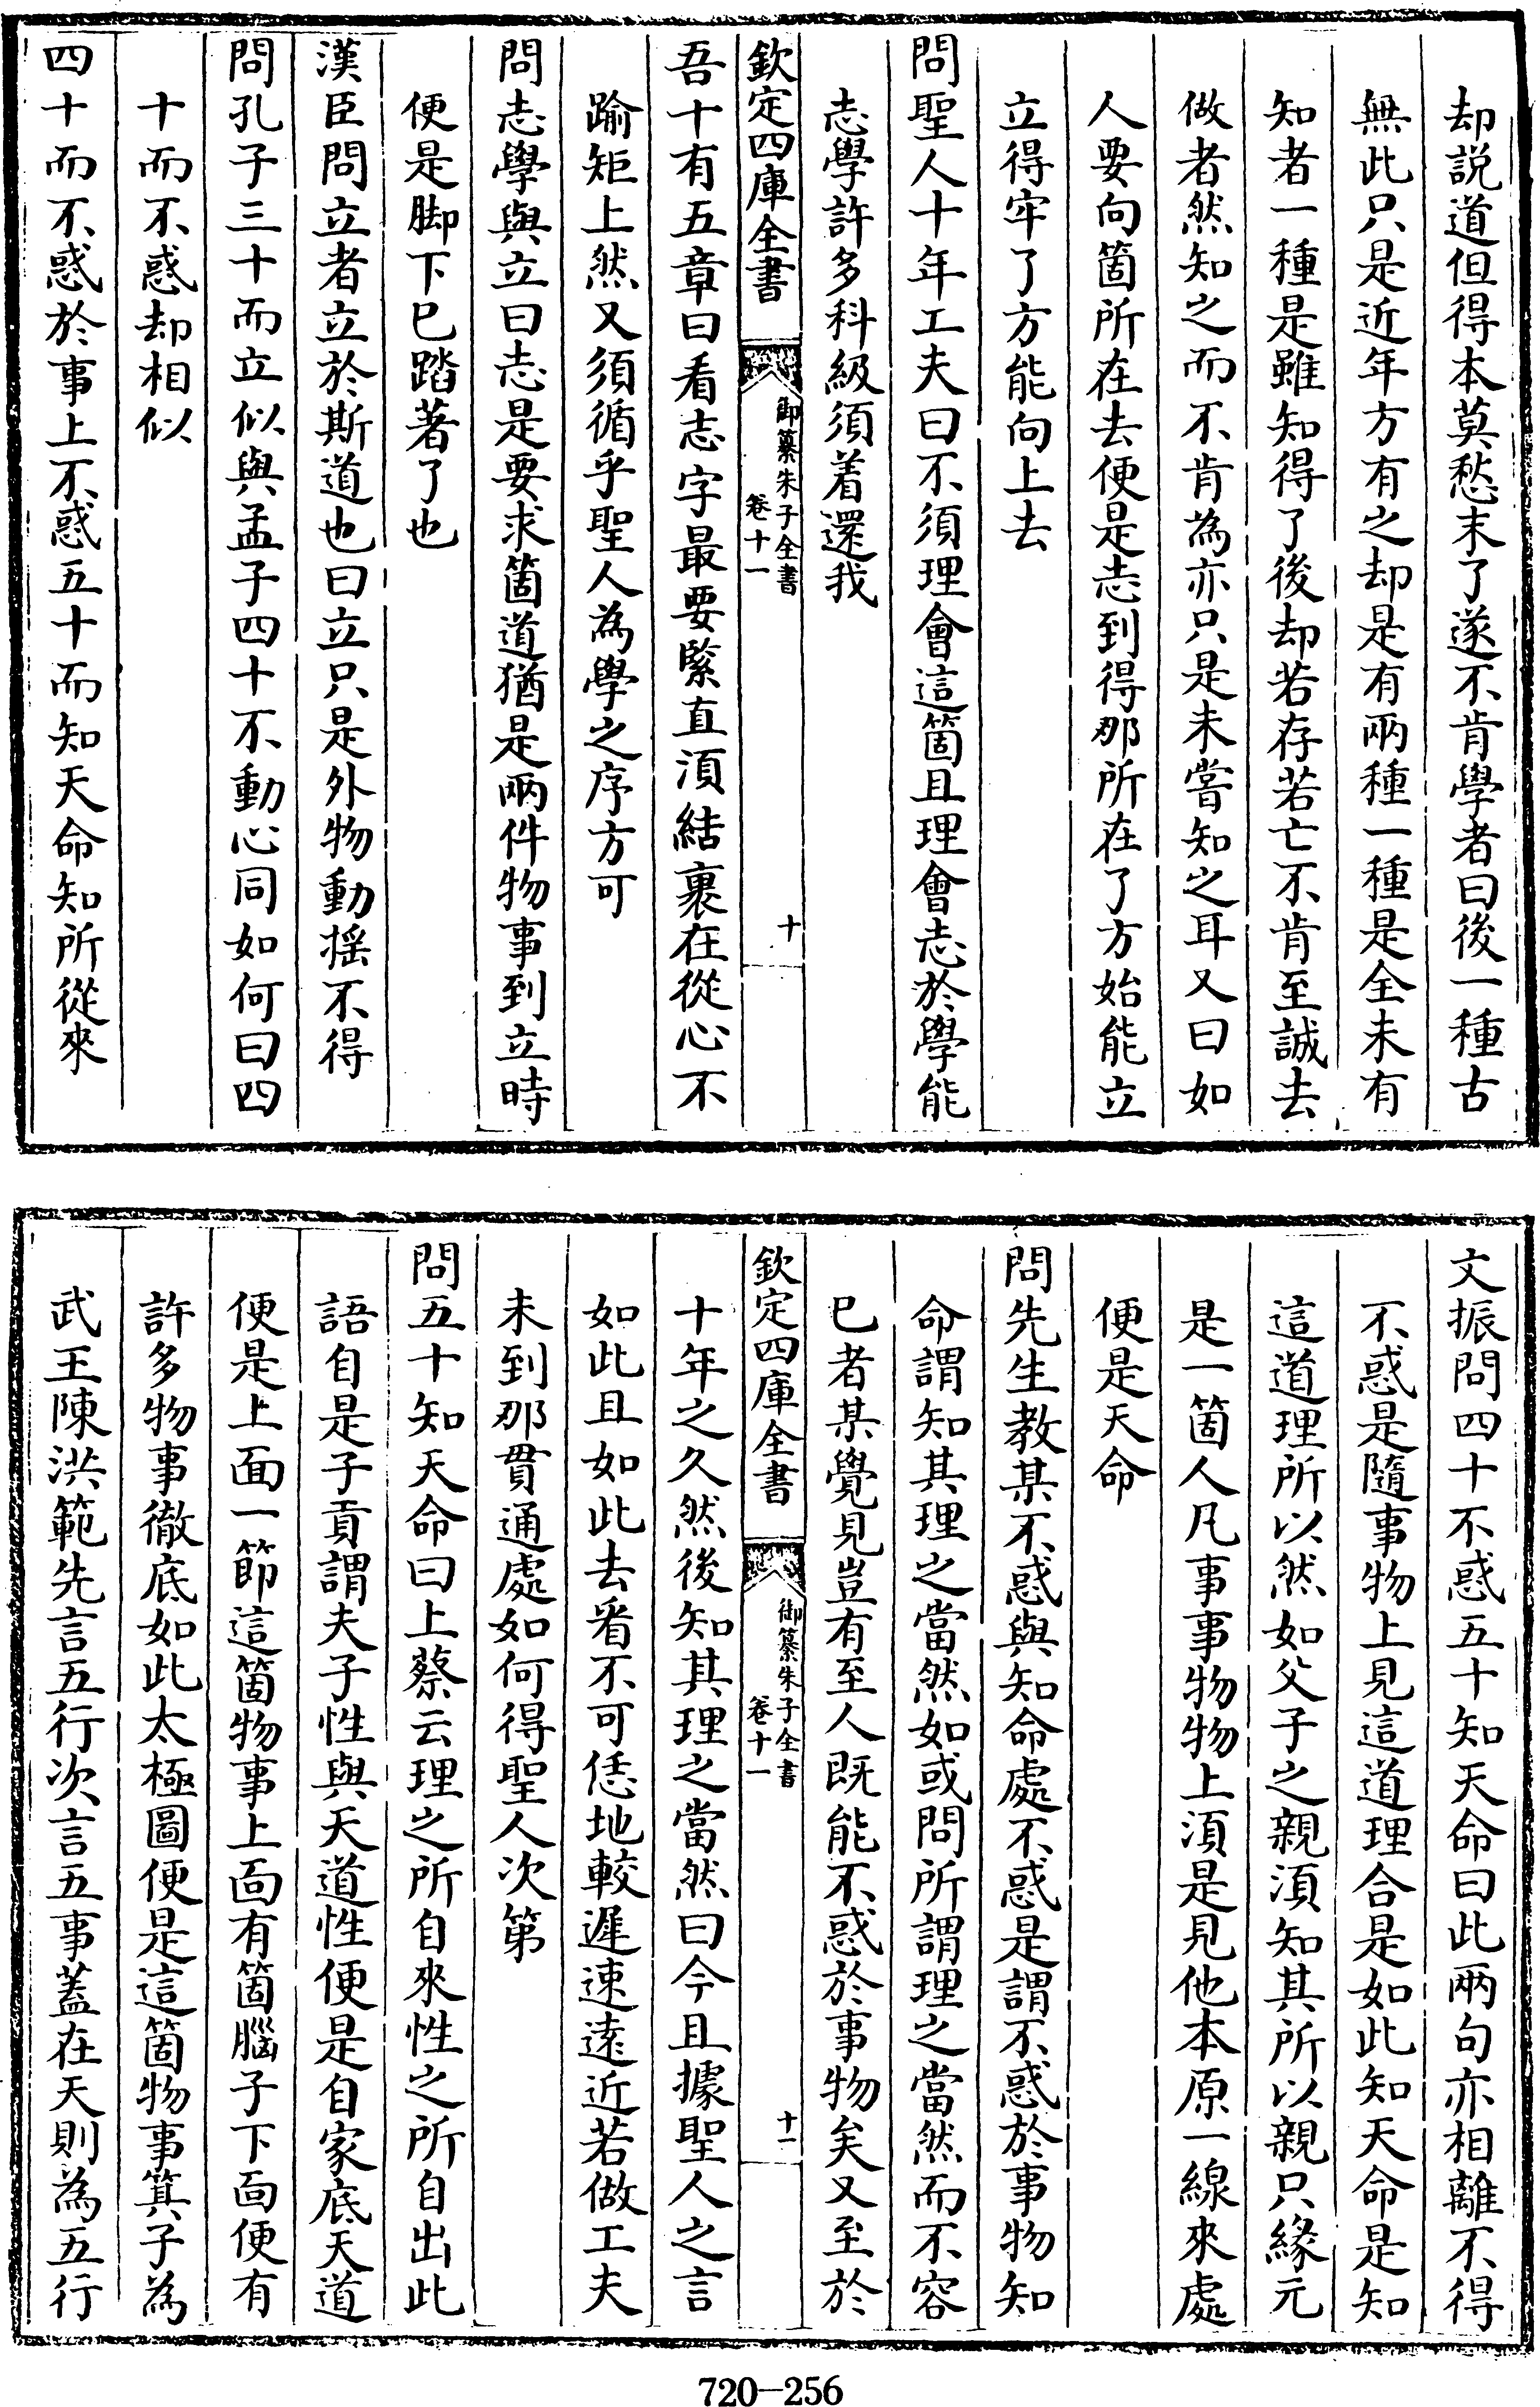 却説道但得本莫愁末了遂不肯學者曰後一種古
無此只是近年方有之却是有兩種一種是全未有
知者一種是雖知得了後却若存若亡不肯至誠去
做者然知之而不肯為亦只是未嘗知之耳又曰如
人要向箇所在去便是志到得那所在了方始能立
立得牢了方能向上去
問聖人十年工夫曰不須理會這箇且理會志於學能
志學許多科級須着還我
欽定四庫全書
御纂朱子全書
卷十一
十
吾十有五章曰看志字最要緊直湏結裹在從心不
踰矩上然又須循乎聖人為學之序方可
問志學與立曰志是要求箇道猶是兩件物事到立時
便是脚下已踏著了也
漢臣問立者立於斯道也曰立只是外物動揺不得
問孔子三十而立似與孟子四十不動心同如何曰四
十而不惑却相似
四十而不惑於事上不惑五十而知天命知所從來
文振問四十不惑五十知天命曰此兩句亦相離不得
不惑是隨事物上見這道理合是如此知天命是知
這道理所以然如父子之親湏知其所以親只緣元
是一箇人凡事事物物上湏是見他本原一線來處
便是天命
問先生教某不惑與知命處不惑是謂不惑於事物知
命謂知其理之當然如或問所謂理之當然而不容
已者某覺見豈有至人既能不惑於事物矣又至於
欽定四庫全書
御纂朱子全書
卷十一
十一
十年之久然後知其理之當然曰今且據聖人之言
如此且如此去看不可恁地較遲速遠近若做工夫
未到那貫通處如何得聖人次第
問五十知天命曰上蔡云理之所自來性之所自出此
語自是子貢謂夫子性與天道性便是自家底天道
便是上面一節這箇物事上面有箇腦子下面便有
許多物事徹底如此太極圖便是這箇物事箕子為
武王陳洪範先言五行次言五事蓋在天則為五行
720—256